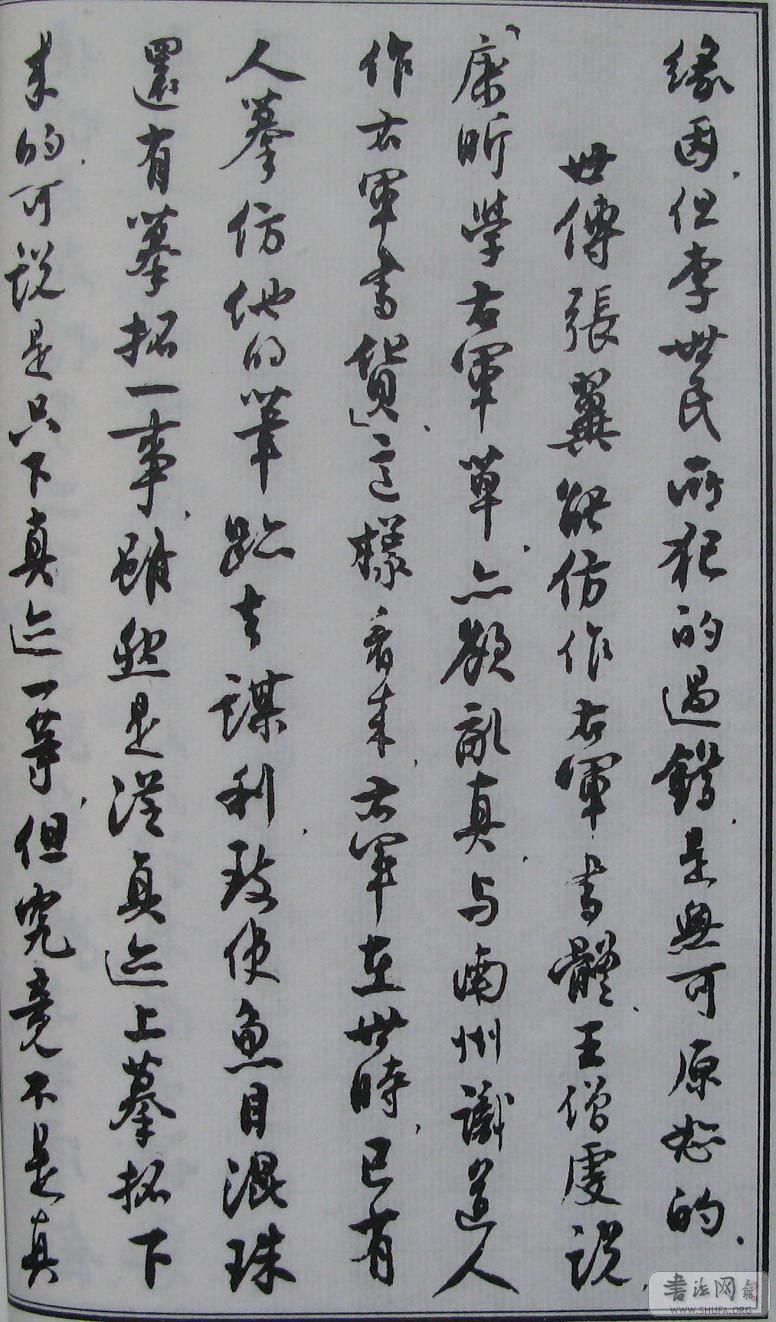 緣因，但李世民所犯的過錯，是無可原恕的。
世傳張翼能仿作右軍書體，王僧虔說，
「康昕學右軍草，亦欲亂真，与南州識道人
作右軍書貨」，這樣看來，右軍在世時，已有
人摹仿他的筆跡去謀利，致使魚目混珠
還有摹拓一事，雖然是從真迹上摹拓下
来的，可說是只下真迹一等，但究竟不是真
書法网
WWW.SHUFA.ORG